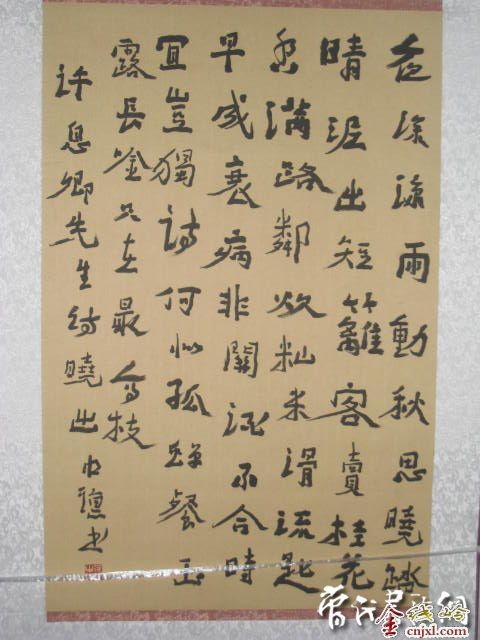 夜雨動秋思曉踏
晴泥出短籬客賣桂花
香滿路鄰炊籼米滑流匙
早成衰病非關酒不合時
宜豈獨詩何似孤蟬餐玉
露長吟只在最高枝
許息卿先生詩曉出書